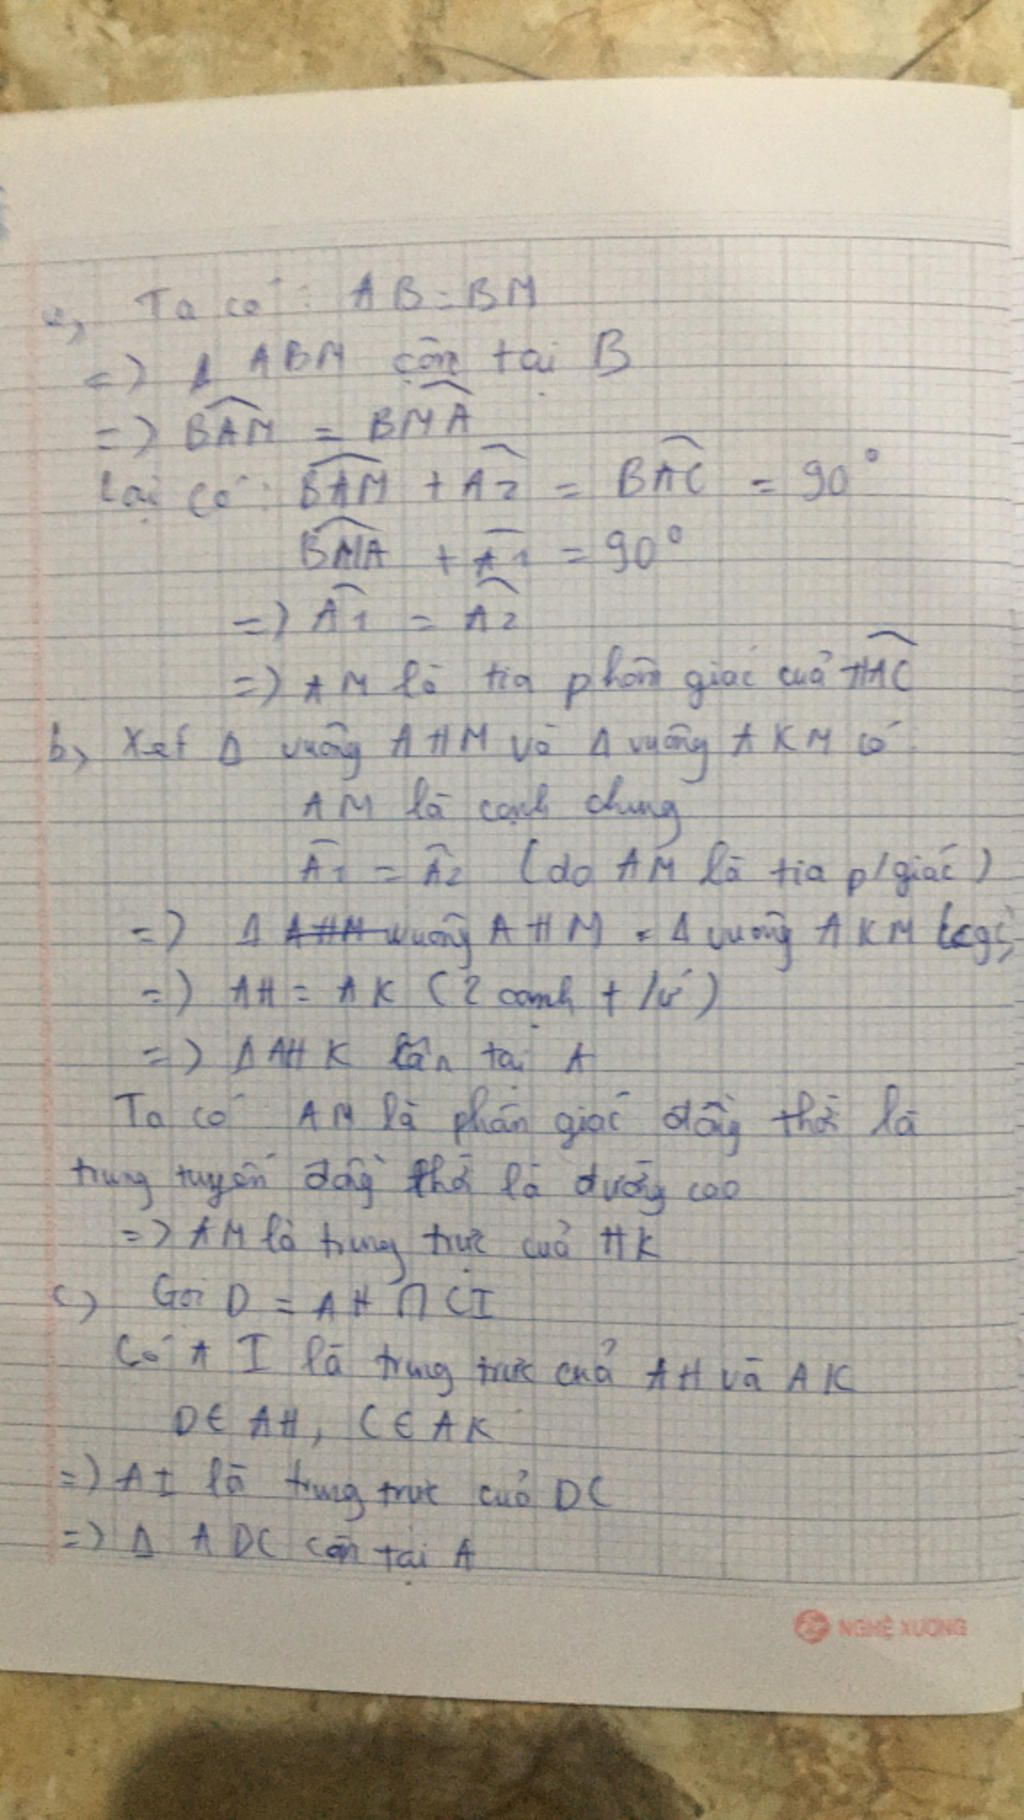 a, Ta có: AB = BM
=> Δ ABM cân tại B
=> \widehat{BAM} = \widehat{BMA}
Lại có: \widehat{BAM} + \widehat{A2} = \widehat{BAC} = 90°
\widehat{BMA} + \widehat{A1} = 90°
=> \widehat{A1} = \widehat{A2}
=> AM là tia phân giác của \widehat{HAC}
b, Xét Δ vuông AHM và Δ vuông AKM có
AM là cạnh chung
\widehat{A1} = \widehat{A2} (do AM là tia p/giác)
=> Δ AHM vuông AHM = Δ vuông AKM
=> AH = AK (2 cạnh t/ứ)
=> Δ AHK cân tại A
Ta có AM là phân giác đồng thời là
trung tuyến đồng thời là đường cao
=> AM là trung trực của HK
c) Gọi D = AH ∩ CI
Có AI là trung trực của AH và AK
D∈ AH, C∈ AK
=> AI là trung trực của DC
=> Δ ADC cân tại A
NGHỆ XƯƠNG